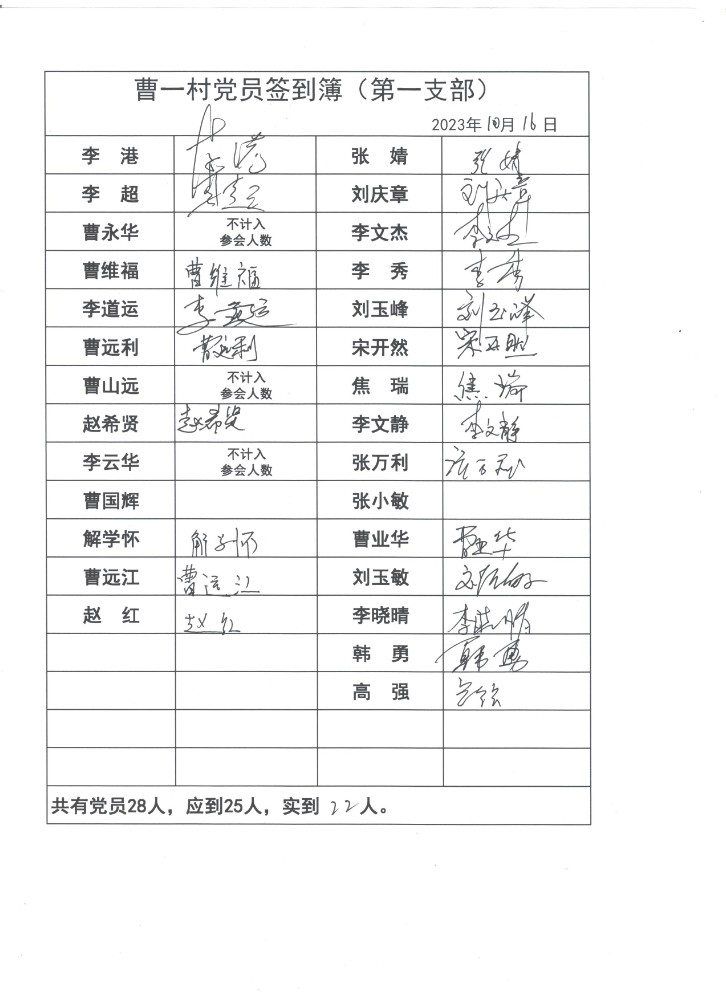 曹一村党员签到簿（第一支部）
2023年10月16日
李 港 李港 张 婧 张婧
李 超 李超 刘庆章 刘庆章
曹永华 不计入 李文杰 李文杰
参会人数
曹维福 曹维福 李 秀 李秀
李道运 李道运 刘玉峰 刘玉峰
曹远利 曹远利 宋开然 宋开然
曹山远 不计入 焦 瑞 焦瑞
参会人数
赵希贤 赵希贤 李文静 李文静
李云华 不计入 张万利 张万利
参会人数
曹国辉 张小敏
解学怀 解学怀 曹业华 曹业华
曹远江 曹远江 刘玉敏 刘玉敏
赵 红 赵红 李晓晴 李晓晴
韩 勇 韩勇
高 强 高强
共有党员28人，应到25人，实到 22人。